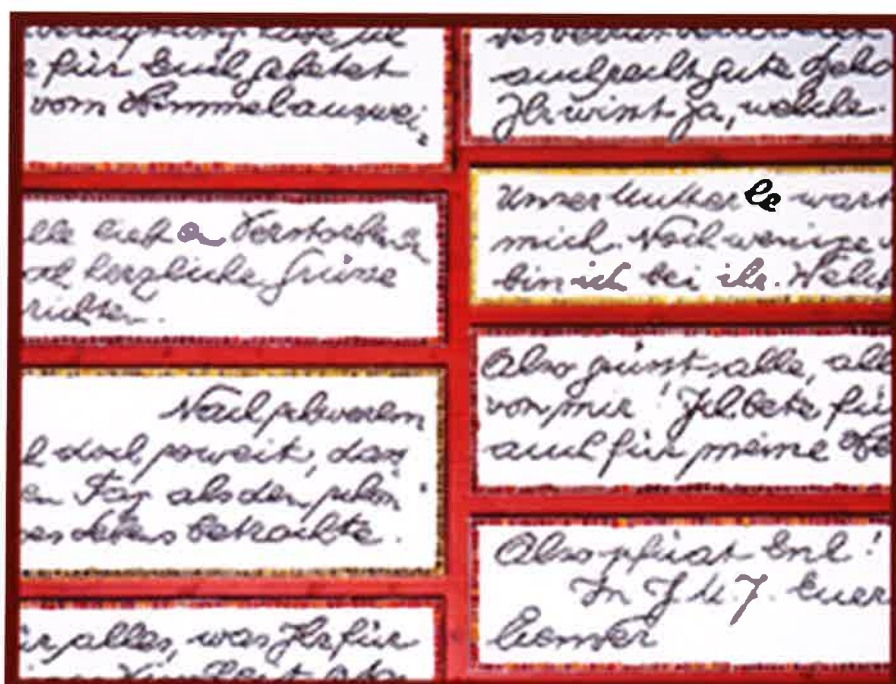 für Euch gebetet
vom Himmel auswei-
lle lieben Verstorbenen
herzliche Grüsse
richten.
Nach schwerem
doch soweit, dass
en Tag als den schön-
des Lebens betrachte.
ür alles, was Ihr für
sind recht gute
Ihr wisst ja, welche
Unser Mutterle wart
mich. Noch wenige
bin ich bei ihr. Welch
Also grüsst alle, alle
von mir! Ich bete für
auch für meine
Also pfüat Enk!
In J. U. J. Euer